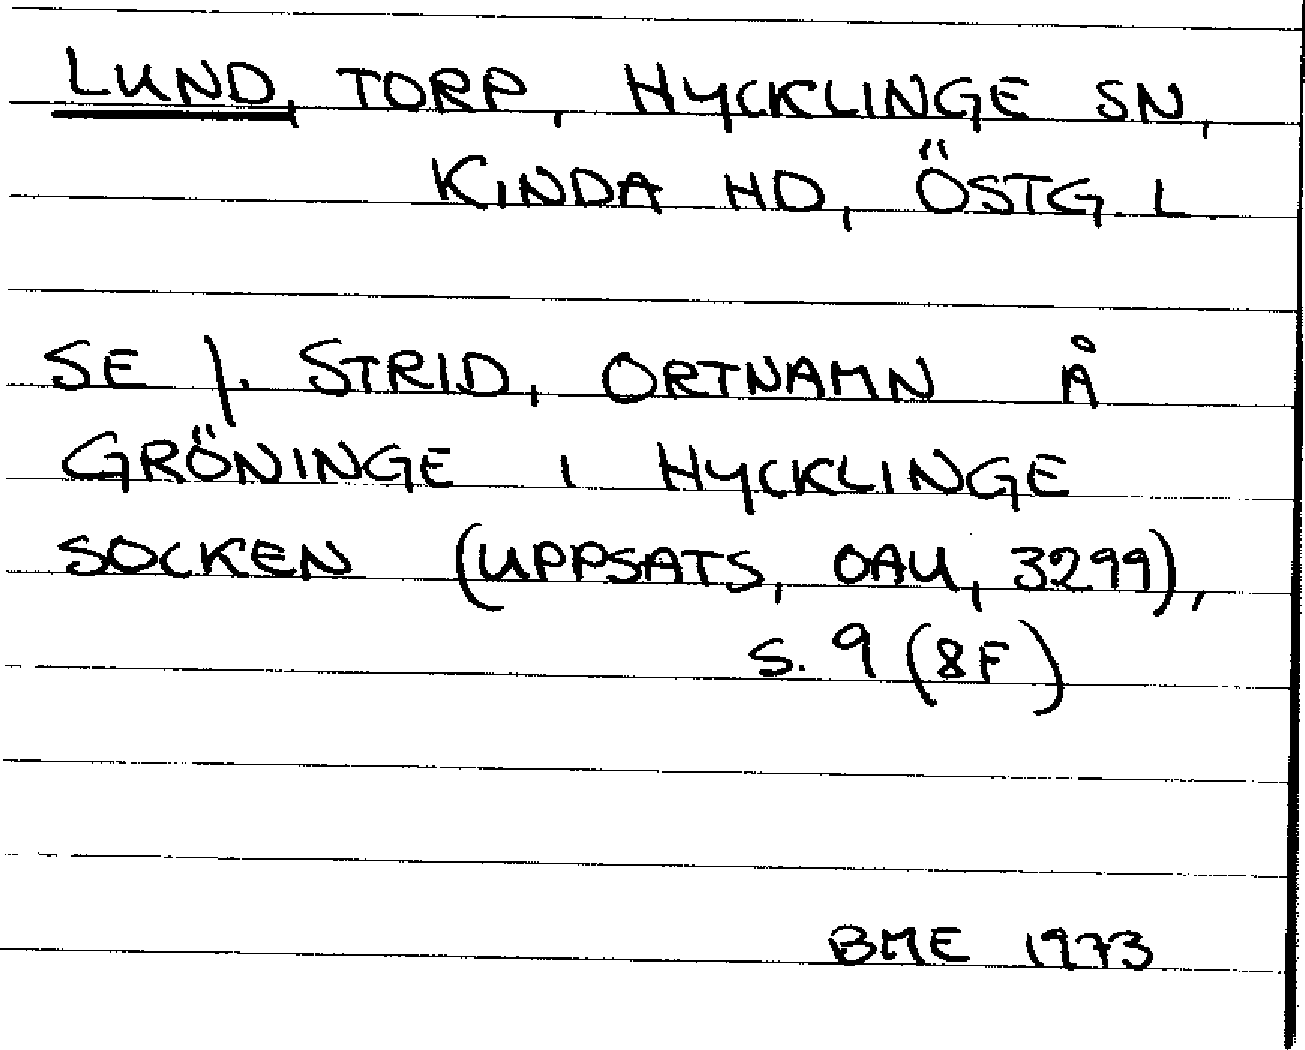 LUND, TORP, HYCKLINGE SN,
KINDA HD, ÖSTG. L.
SE J. STRID, ORTNAMN Å
GRÖNINGE I HYCKLINGE
SOCKEN (UPPSATS, OAU, 3299),
S. 9 (8F)
BME 1973